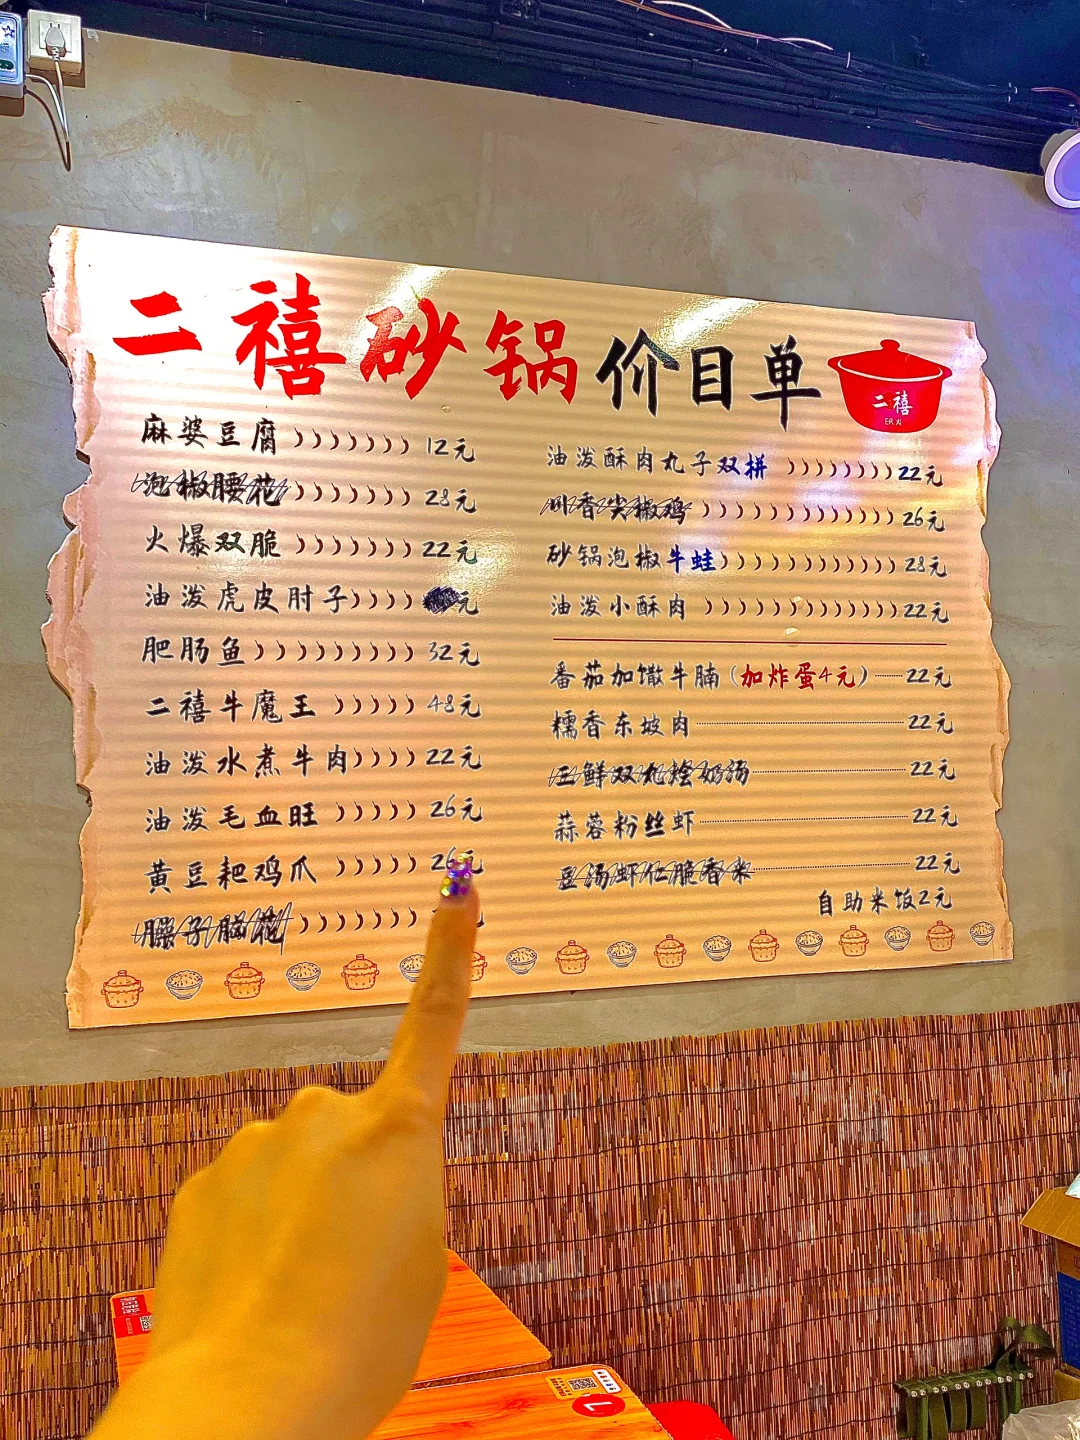 二禧砂锅价目单
二禧
麻婆豆腐 12元
泡椒腰花 28元
火爆双脆 22元
油泼虎皮肘子 元
肥肠鱼 32元
二禧牛魔王 48元
油泼水煮牛肉 22元
油泼毛血旺 26元
黄豆耙鸡爪 26元
油泼酥肉丸子双拼 22元
川香尖椒鸡 26元
砂锅泡椒牛蛙 28元
油泼小酥肉 22元
番茄加馓牛腩(加炸蛋4元) 22元
糯香东坡肉 22元
三鲜双丸烩奶汤 22元
蒜蓉粉丝虾 22元
豆汤虾仁脆香米 22元
自助米饭2元